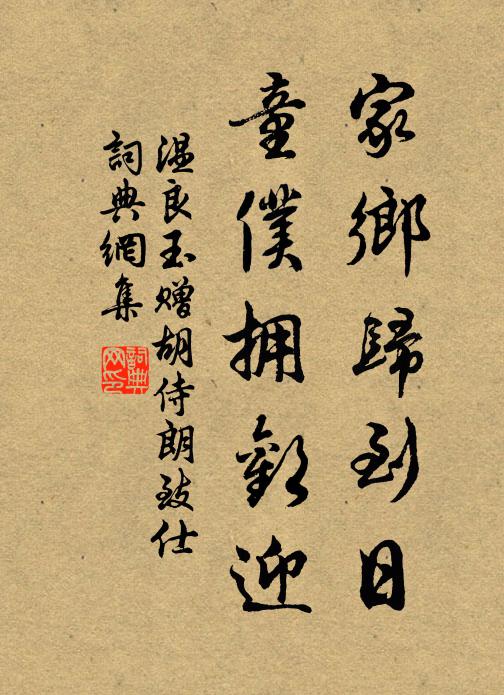 家鄉歸到日
童僕拥歡迎
温良玉赠胡侍朗致仕
詞典網集
詞典网印